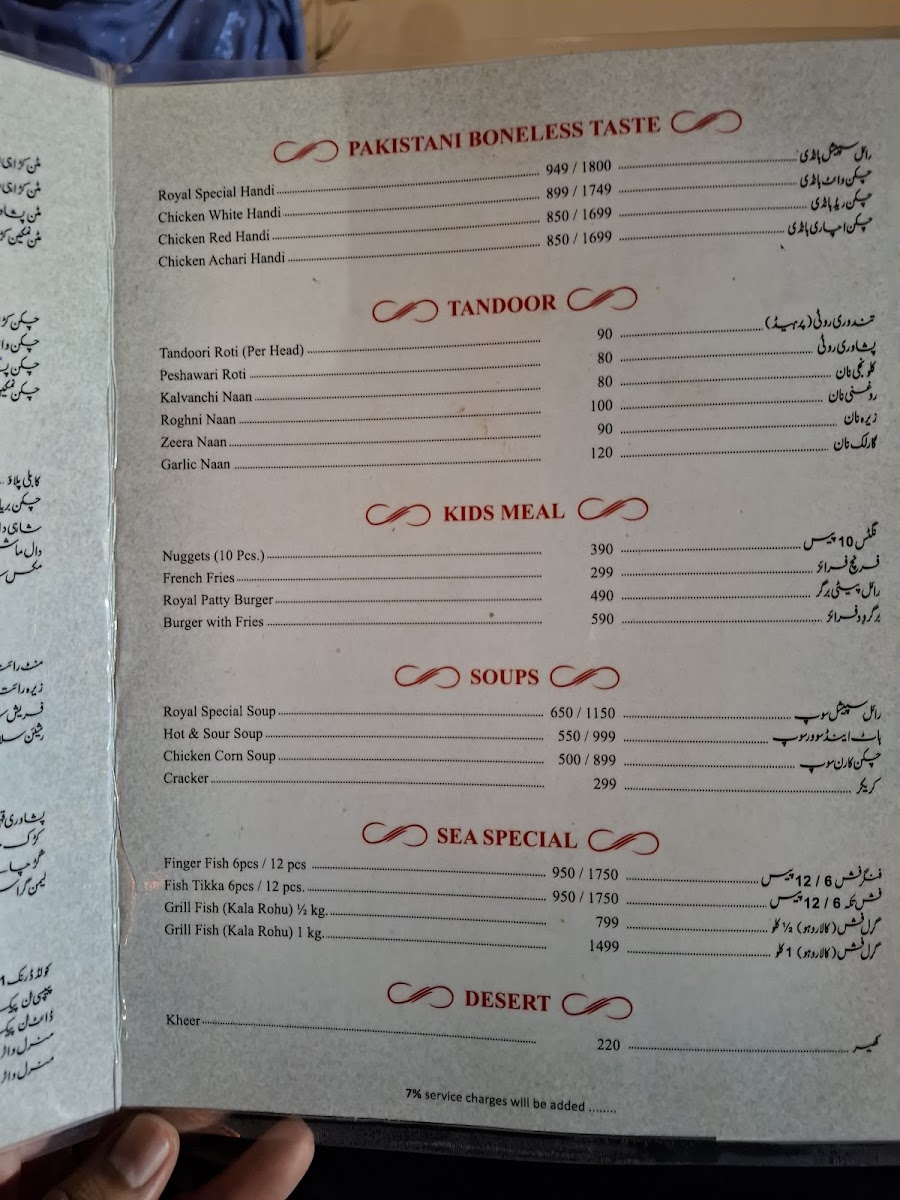 PAKISTANI BONELESS TASTE
Royal Special Handi 949 / 1800 رائل سپیشل ہانڈی
Chicken White Handi 899 / 1749 چکن وائٹ ہانڈی
Chicken Red Handi 850 / 1699 چکن ریڈ ہانڈی
Chicken Achari Handi 850 / 1699 چکن اچاری ہانڈی
TANDOOR
Tandoori Roti (Per Head) 90 تندوری روٹی (پر ہیڈ)
Peshawari Roti 80 پشاوری روٹی
Kalvanchi Naan 80 کلونجی نان
Roghni Naan 100 روغنی نان
Zeera Naan 90 زیرہ نان
Garlic Naan 120 گارلک نان
KIDS MEAL
Nuggets (10 Pcs.) 390 نگٹس 10 پیس
French Fries 299 فرنچ فرائز
Royal Patty Burger 490 رائل پیٹی برگر
Burger with Fries 590 برگر ود فرائز
SOUPS
Royal Special Soup 650 / 1150 رائل سپیشل سوپ
Hot & Sour Soup 550 / 999 ہاٹ اینڈ سوور سوپ
Chicken Corn Soup 500 / 899 چکن کارن سوپ
Cracker 299 کریکر
SEA SPECIAL
Finger Fish 6pcs / 12 pcs 950 / 1750 فنگر فش 6 / 12 پیس
Fish Tikka 6pcs / 12 pcs. 950 / 1750 فش تکہ 6 / 12 پیس
Grill Fish (Kala Rohu) ½ kg. 799 گرل فش (کالا روہو) ½ کلو
Grill Fish (Kala Rohu) 1 kg. 1499 گرل فش (کالا روہو) 1 کلو
DESERT
Kheer 220 کھیر
7% service charges will be added ........
مٹن کڑاہی
مٹن کڑاہی
مٹن
مٹن نمکین
چکن
چکن
چکن
چکن نمکین
کابلی پلاؤ
چکن
شاہی
دال ماش
مکس
منٹ رائتہ
زیرہ رائتہ
فریش
رشین
پشاوری
کڑک
گڑ
لیمن
کولڈ ڈرنک
پیپسی ٹن پیک
ڈائٹ ٹن پیک
منرل واٹر
منرل واٹر